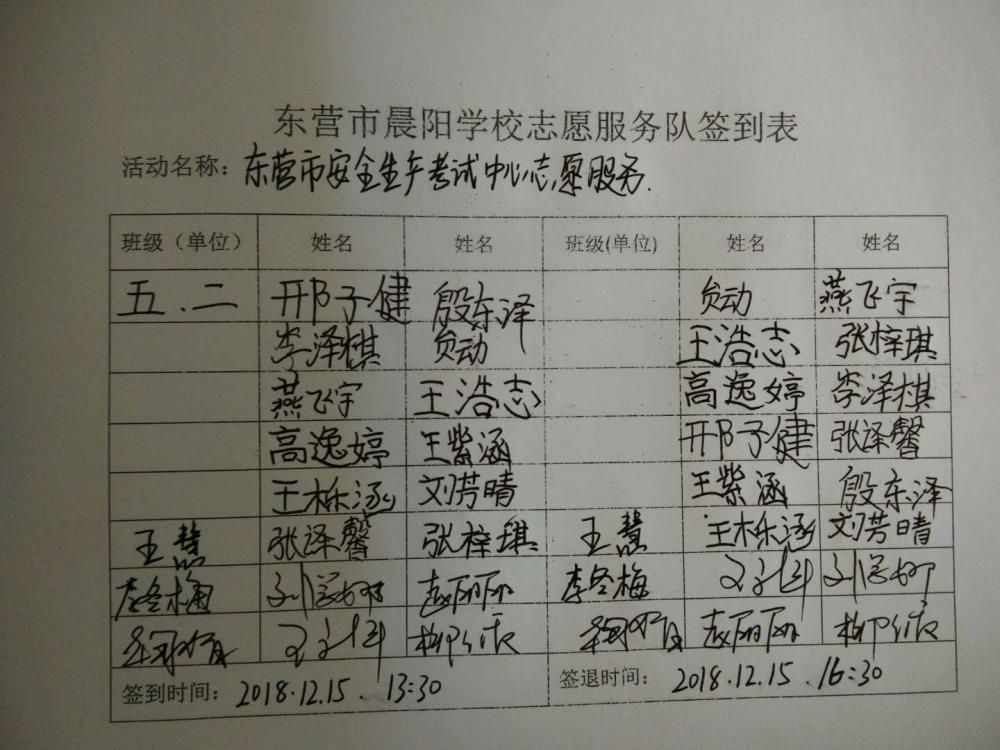 东营市晨阳学校志愿服务队签到表
活动名称：东营市安全生产考试中心志愿服务.
班级（单位） 姓名 姓名 班级(单位) 姓名 姓名
五.二 邢子健 殷东泽 贠动 燕飞宇
李泽棋 贠动 王浩志 张梓琪
燕飞宇 王浩志 高逸婷 李泽棋
高逸婷 王紫涵 邢子健 张泽馨
王栎涵 刘芳晴 王紫涵 殷东泽
王慧 张泽馨 张梓琪 王慧 王栎涵 刘芳晴
李冬梅 赵丽丽 李冬梅
赵丽丽
签到时间：2018.12.15. 13:30 签退时间：2018.12.15. 16:30